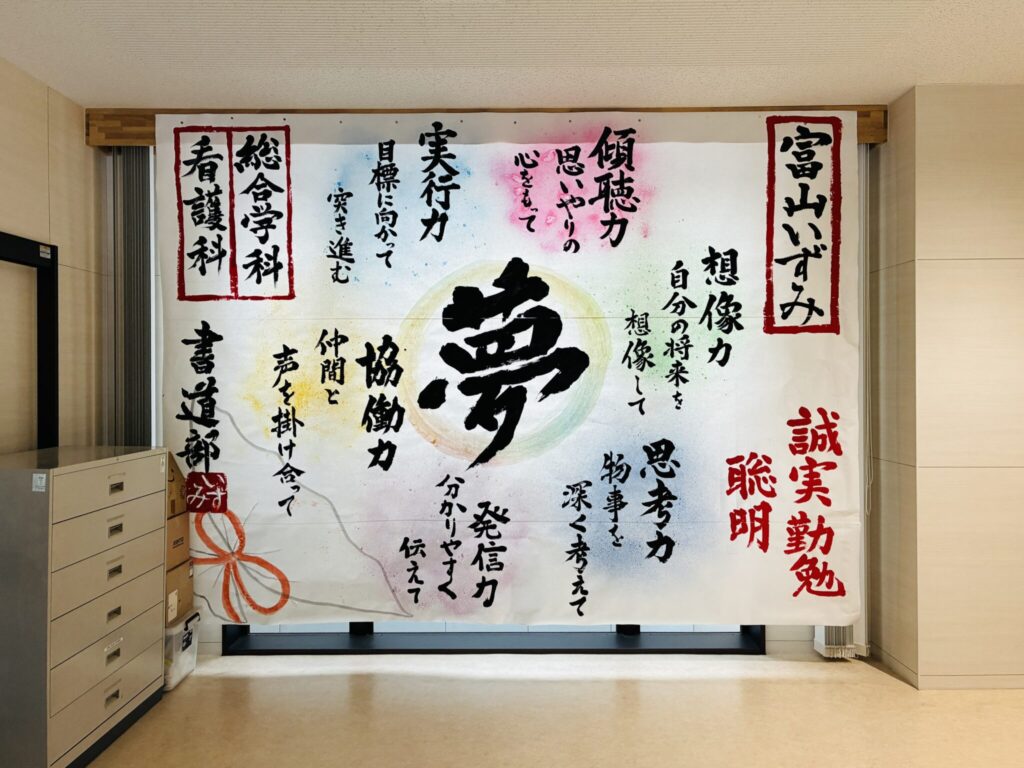 富山いずみ
誠実 勤勉
聡明
想像力
自分の将来を
想像して
傾聴力
思いやりの
心をもって
思考力
物事を
深く考えて
夢
実行力
目標に向かって
突き進む
協働力
仲間と
声を掛け合って
発信力
分かりやすく
伝えて
総合学科
看護科
書道部
いずみ